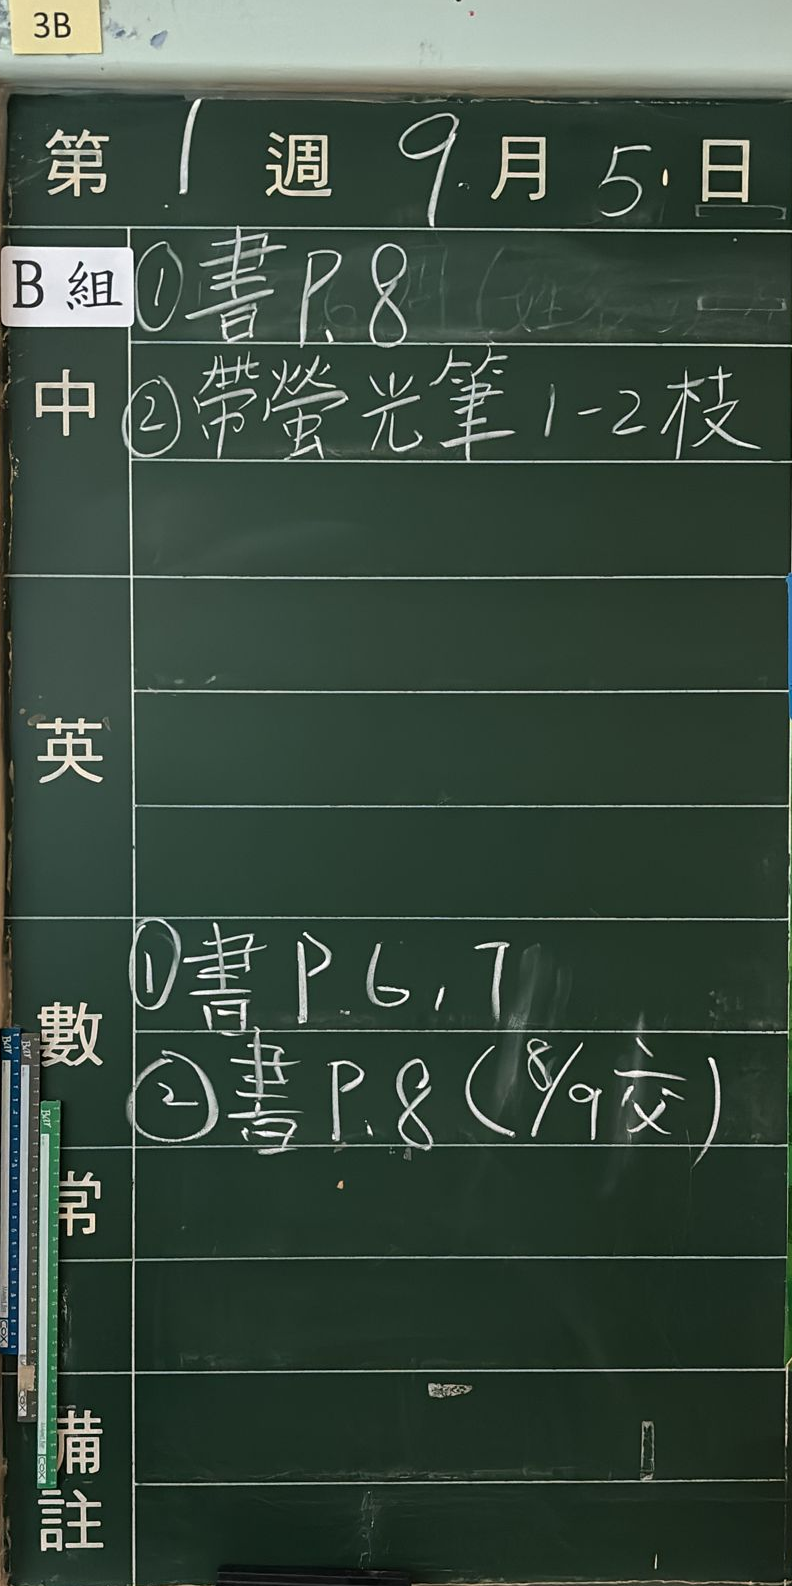 3B
第 1 週 9 月 5 日
B 組 ①書 P.8
中 ②帶螢光筆 1-2 枝
英
數 ①書 P.6,7
②書 P.8 (8/9 交)
常
備
註